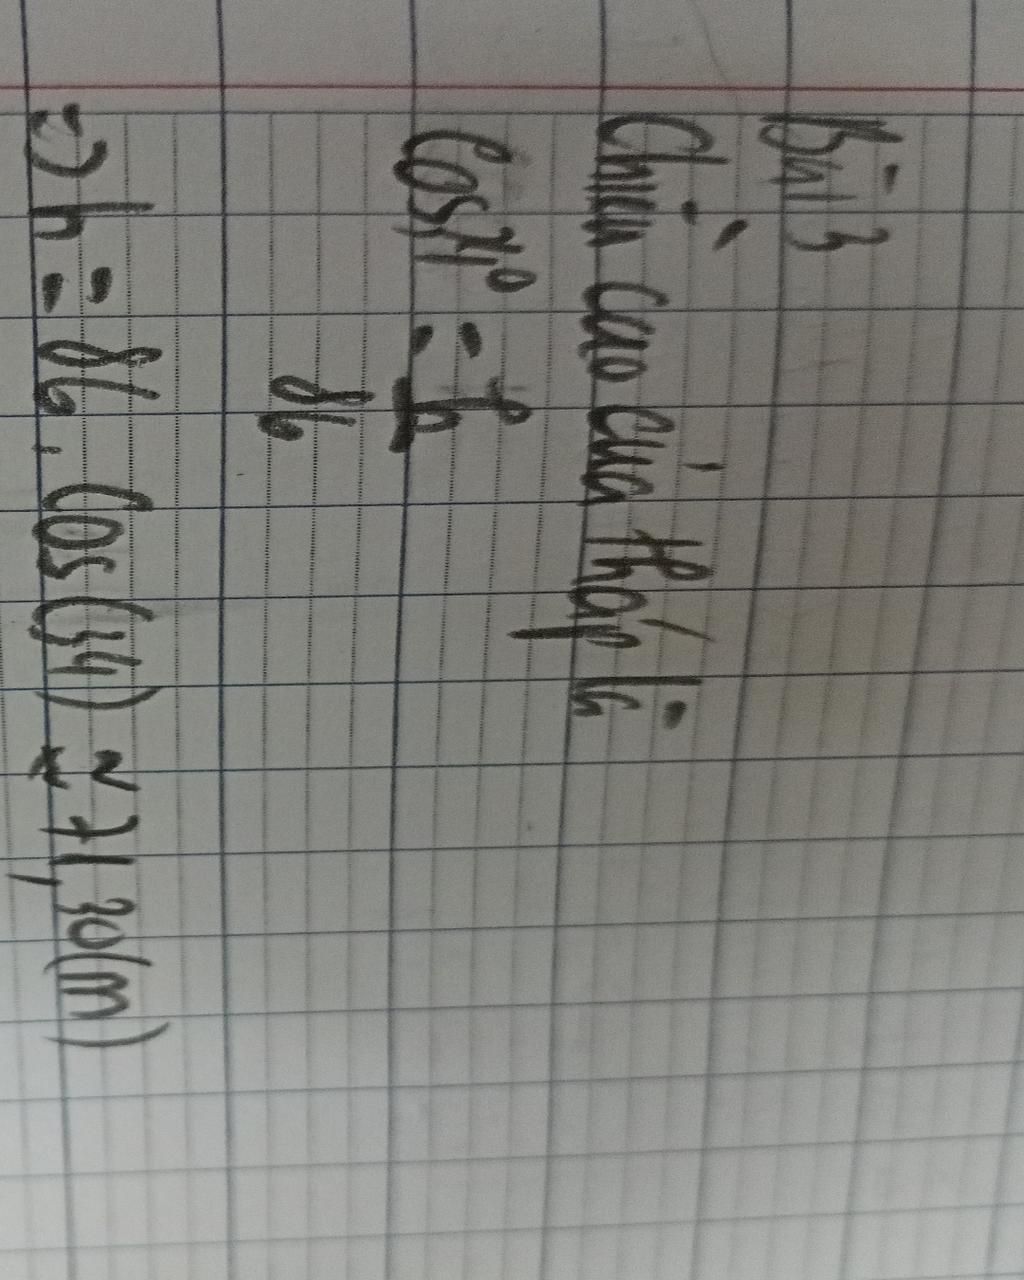 Bài 3
Chiều cao của tháp là
Cos 34° = h
86
=> h = 86 . Cos (34) ≈ 71,30 (m)